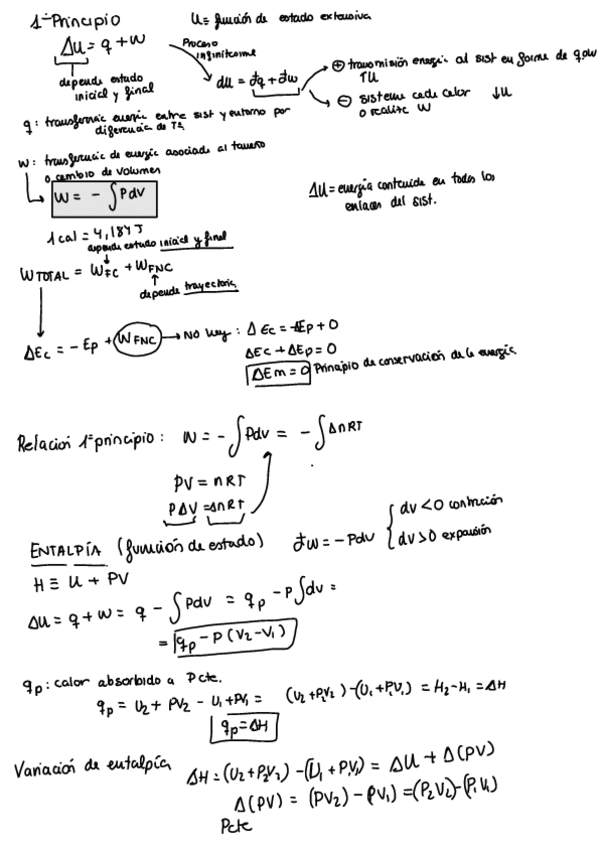 1º Principio
U ≡ función de estado extensiva
ΔU = q + w
Proceso infinitesimal
depende estado inicial y final
dU = đq + đw
⊕ transmisión energía al sist en forma de q o w ↑U
⊖ sistema cede calor o realiza W ↓U
q: transferencia energía entre sist y entorno por
diferencia de Tª
w: transferencia de energía asociada al
o cambio de volumen
W = - ∫ PdV
ΔU = energía contenida en todos los
enlaces del sist.
1 cal = 4,184 J
depende estado inicial y final
W TOTAL = W FC + W FNC
depende trayectoria
ΔEc = - Ep + W FNC → NO hay: ΔEc = -ΔEp + 0
ΔEc + ΔEp = 0
ΔEm = 0 Principio de conservación de la energía
Relación 1º principio: W = - ∫ PdV = - ∫ ΔnRT
PV = nRT
PΔV = ΔnRT
ENTALPÍA (función de estado) đw = - PdV
dv < 0 contracción
dv > 0 expansión
H ≡ U + PV
ΔU = q + w = q - ∫ PdV = qp - P ∫ dv =
= qp - P (V2 - V1)
qp: calor absorbido a P cte.
qp = U2 + PV2 - U1 + PV1 = (U2 + P2V2) - (U1 + P1V1) = H2 - H1 = ΔH
qp = ΔH
Variación de entalpía ΔH = (U2 + P2V2) - (U1 + P1V1) = ΔU + Δ(PV)
Δ(PV) = (PV2) - (PV1) = (P2V2) - (P1V1)
Pcte